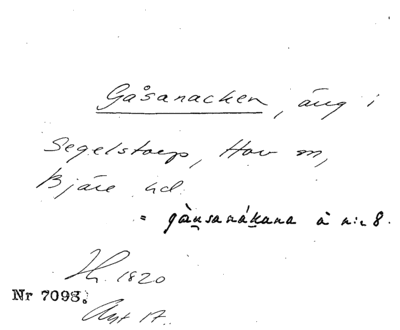 Gåsanacken, äng i
Segelstorp, Hov sn,
Bjäre hd.
= gànsanákana å n:r 8.
1820
Nr 7098.
Ant 17.